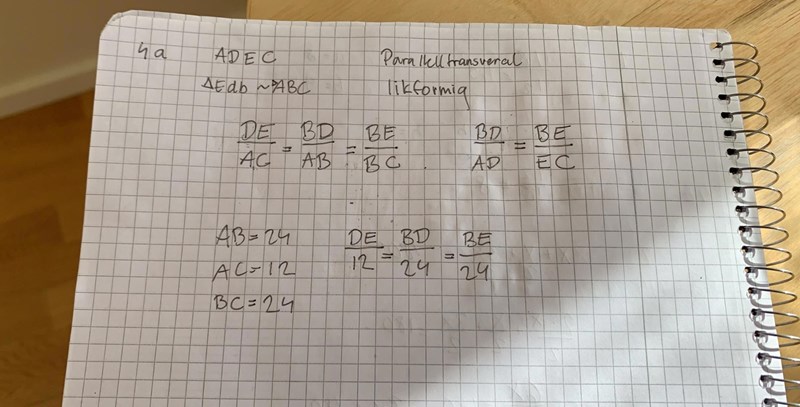 4a ADEC Parallelltransversal
ΔEdb ~ ABC likformig
DE/AC = BD/AB = BE/BC . BD/AD = BE/EC
AB=24 DE/12 = BD/24 = BE/24
AC=12
BC=24